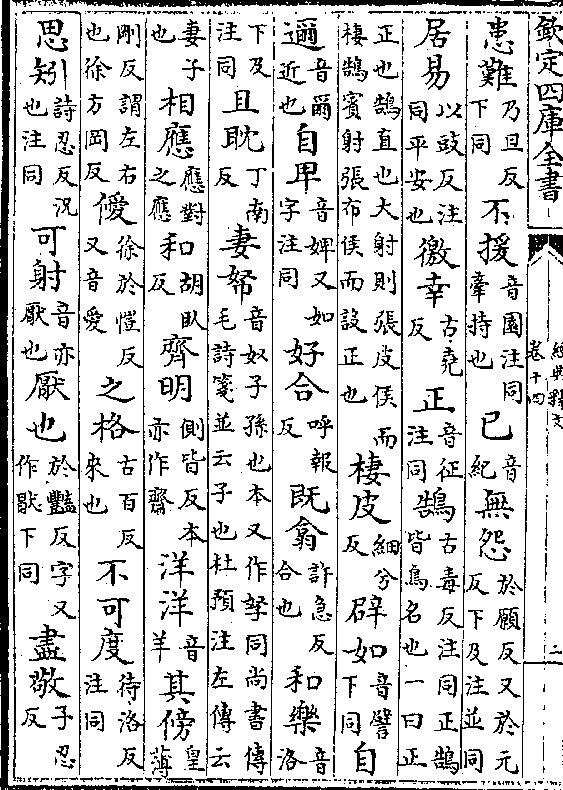 欽定四庫全書
經典釋文
卷十四
二
患難乃旦反下同不援音園注同牽持也已音紀無怨於願反又於元反下及注並同
居易以豉反注同平安也徼幸古堯反正音征注同鵠古毒反注同正鵠皆鳥名也一曰正
正也鵠直也大射則張皮侯而棲鵠賓射張布侯而設正也棲皮細兮反辟如音譬下同自
邇音爾近也自卑音婢又如字注同好合呼報反既翕許急反合也和樂音洛
下及注同且耽丁南反妻帑音奴子孫也本又作孥同尚書傳毛詩箋並云子也杜預注左傳云
妻子也相應應對之應和胡臥反齊明側皆反本亦作齋洋洋音羊其傍皇薄
剛反謂左右也徐方岡反僾徐於愷反又音愛之格古百反來也不可度待洛反注同
思矧詩忍反況也注同可射音亦厭也厭也於豔反字又作猒下同盡敬子忍反